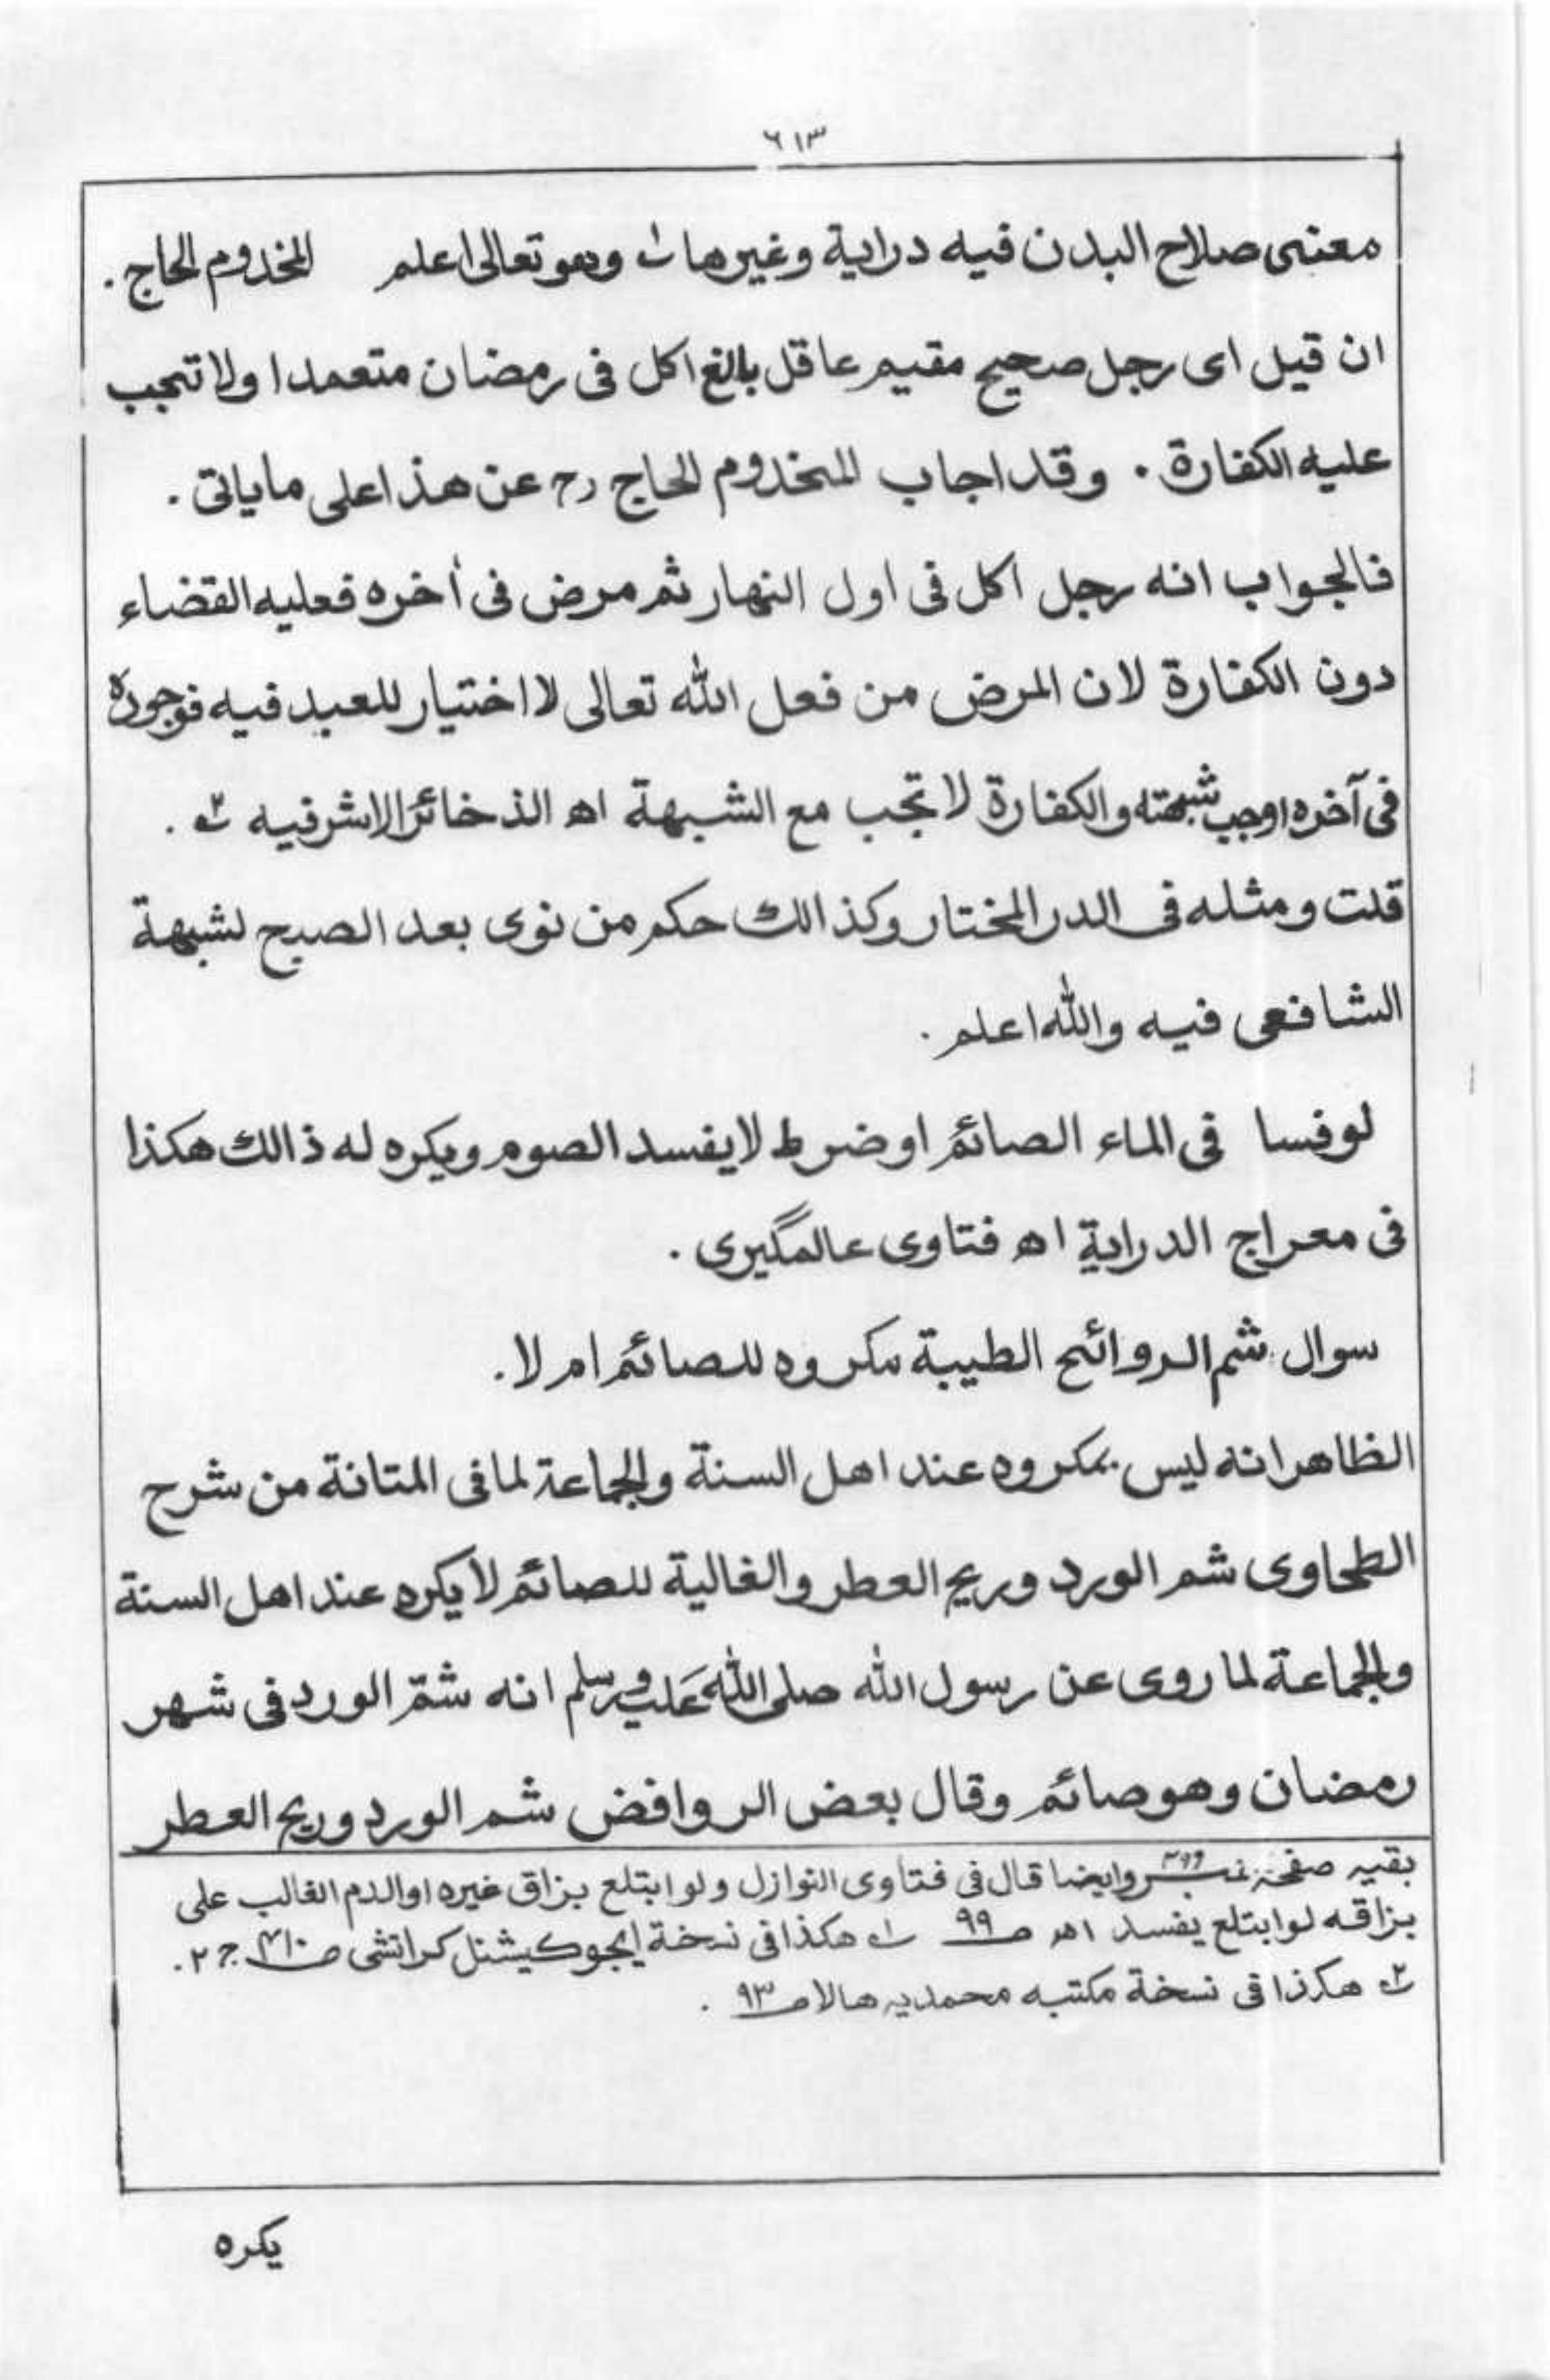 ٦١٣
معنى صلاح البدن فيه دراية وغيرها ؎۱ وهو تعالى اعلم المخدوم الحاج .
ان قيل اى رجل صحيح مقيم عاقل بالغ اكل فى رمضان متعمدا ولا تجب
عليه الكفارة . وقد اجاب المخدوم الحاج رح عن هذا على ماياتى .
فالجواب انه رجل اكل فى اول النهار ثم مرض فى أخره فعليه القضاء
دون الكفارة لان المرض من فعل الله تعالى لا اختيار للعبد فيه فوجوده
فى آخره اوجب شبهته والكفارة لا تجب مع الشبهة اه الذخائر الاشرفيه ؎۲ .
قلت ومثله فى الدر المختار وكذالك حكم من نوى بعد الصبح لشبهة
الشافعى فيه والله اعلم .
لوفسا فى الماء الصائم اوضرط لا يفسد الصوم ويكره له ذالك هكذا
فى معراج الدراية اه فتاوى عالمگيرى .
سوال شم الروائح الطيبة مكروه للصائم ام لا .
الظاهر انه ليس بمكروه عند اهل السنة والجماعة لما فى المتانة من شرح
الطحاوى شم الورد وريح العطر والغالية للصائم لا يكره عند اهل السنة
والجماعة لما روى عن رسول الله صلى الله عليه وسلم انه شمّ الورد فى شهر
رمضان وهو صائم وقال بعض الروافض شم الورد وريح العطر
بقيه صفحہ نمبر وايضا قال فى فتاوى النوازل ولو ابتلع بزاق غيره او الدم الغالب على
بزاقه لو ابتلع يفسد اه صـ٩٩ ؎۱ هكذا فى نسخة ايجوكيشنل كراتشى ج ٢ .
؎۲ هكذا فى نسخة مكتبه محمديه هالا صـ٩٣ .
يكره